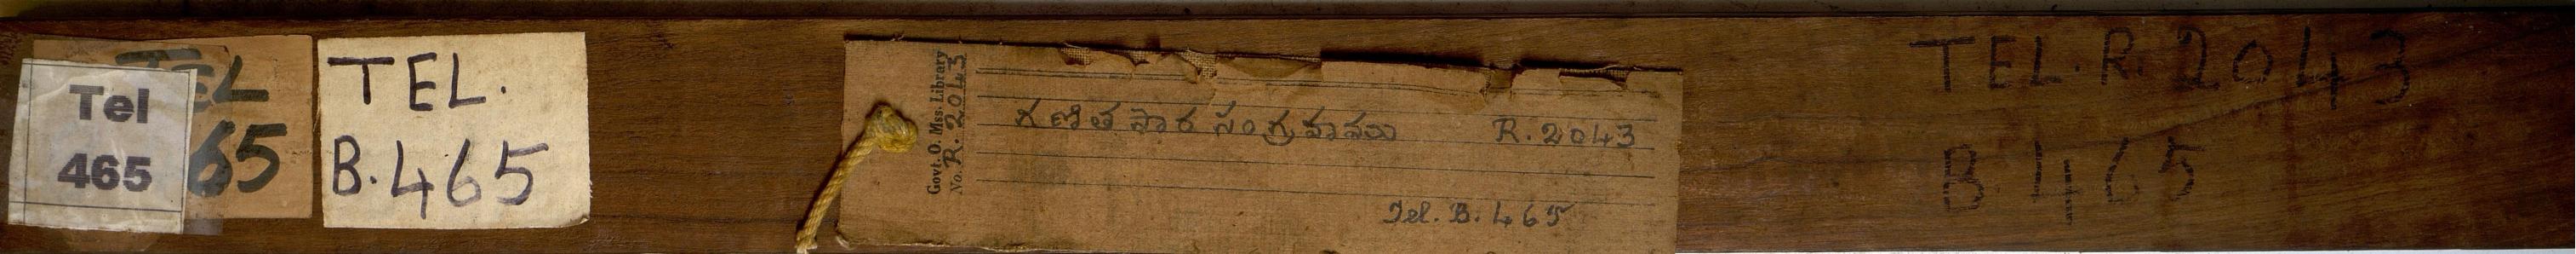 Tel
465
TEL
65
TEL.
B. 465
Govt. O. Mss. Library
No. R. 2043
గణిత సార సంగ్రహము R. 2043
Tel. B. 465
TEL. R. 2043
B 465